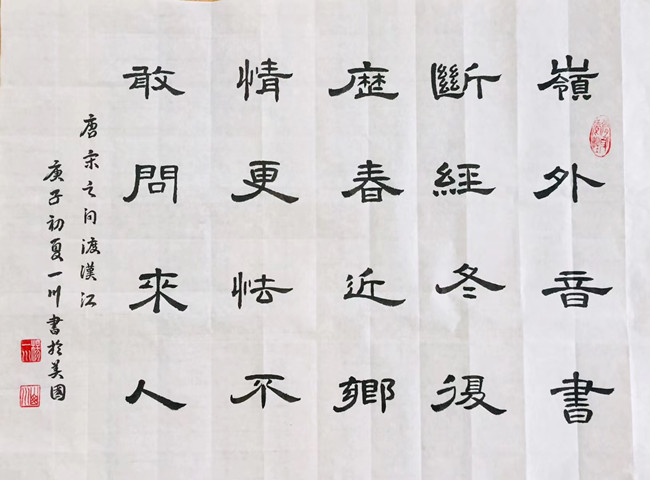 嶺外音書
斷經冬復
歷春近鄉
情更怯不
敢問來人
唐宋之问渡漢江
庚子初夏一川書於美國